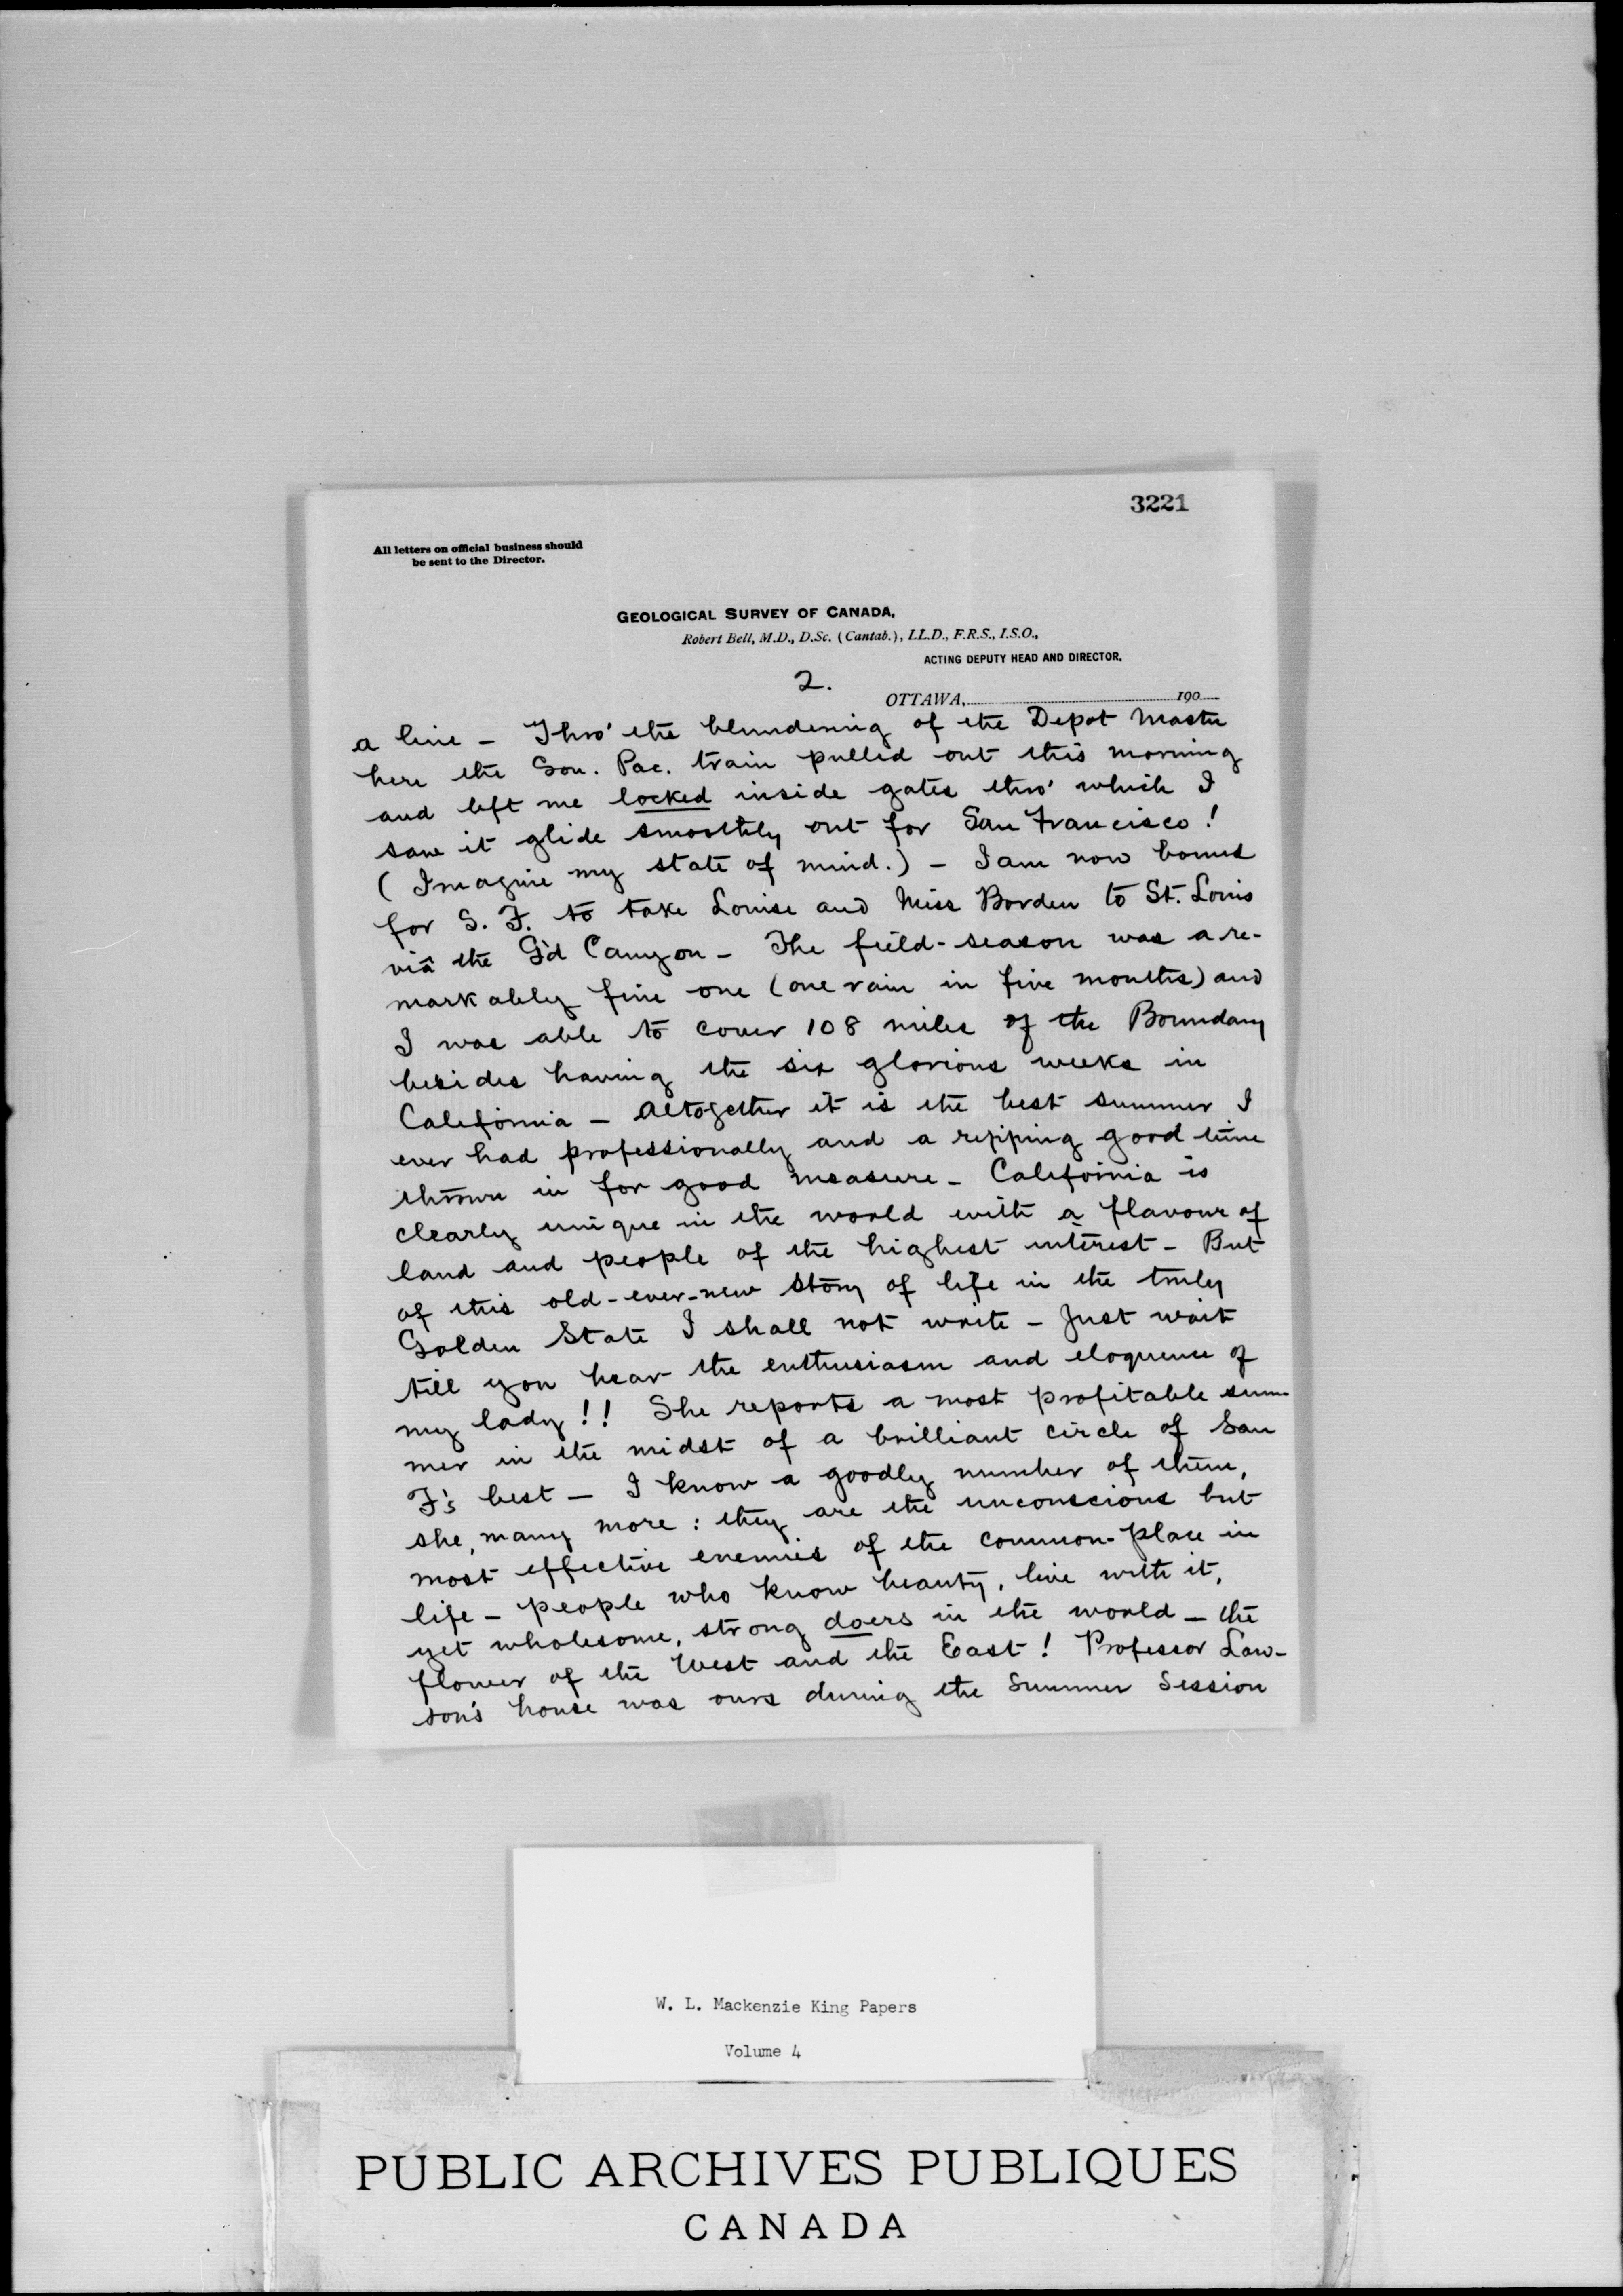 3221
All letters on official business should
be sent to the Director.
GEOLOGICAL SURVEY OF CANADA,
Robert Bell, M.D., D.Sc. (Cantab.), LL.D., F.R.S., I.S.O.,
ACTING DEPUTY HEAD AND DIRECTOR.
2.
OTTAWA, 190
a line - Thro' the blundering of the Depot Master
here the Sou. Pac. train pulled out this morning
and left me locked inside gates thro' which I
saw it glide smoothly out for San Francisco!
(Imagine my state of mind.) - I am now bound
for S. F. to take Louise and Miss Borden to St. Louis
viâ the G'd Canyon - The field-season was a re-
markably fine one (one rain in five months) and
I was able to cover 108 miles of the Boundary
besides having the six glorious weeks in
California - Altogether it is the best summer I
ever had professionally and a ripping good time
thrown in for good measure - California is
clearly unique in the world with a flavour of
land and people of the highest interest - But
of this old-ever-new story of life in the truly
Golden State I shall not write - Just wait
till you hear the enthusiasm and eloquence of
my lady!! She reports a most profitable sum-
mer in the midst of a brilliant circle of San
F's best - I know a goodly number of them,
she, many more: they are the unconscious but
most effective enemies of the common-place in
life - people who know beauty, live with it,
yet wholesome, strong doers in the world - the
flower of the West and the East! Professor Law-
son's house was ours during the Summer Session
W. L. Mackenzie King Papers
Volume 4
PUBLIC ARCHIVES PUBLIQUES
CANADA